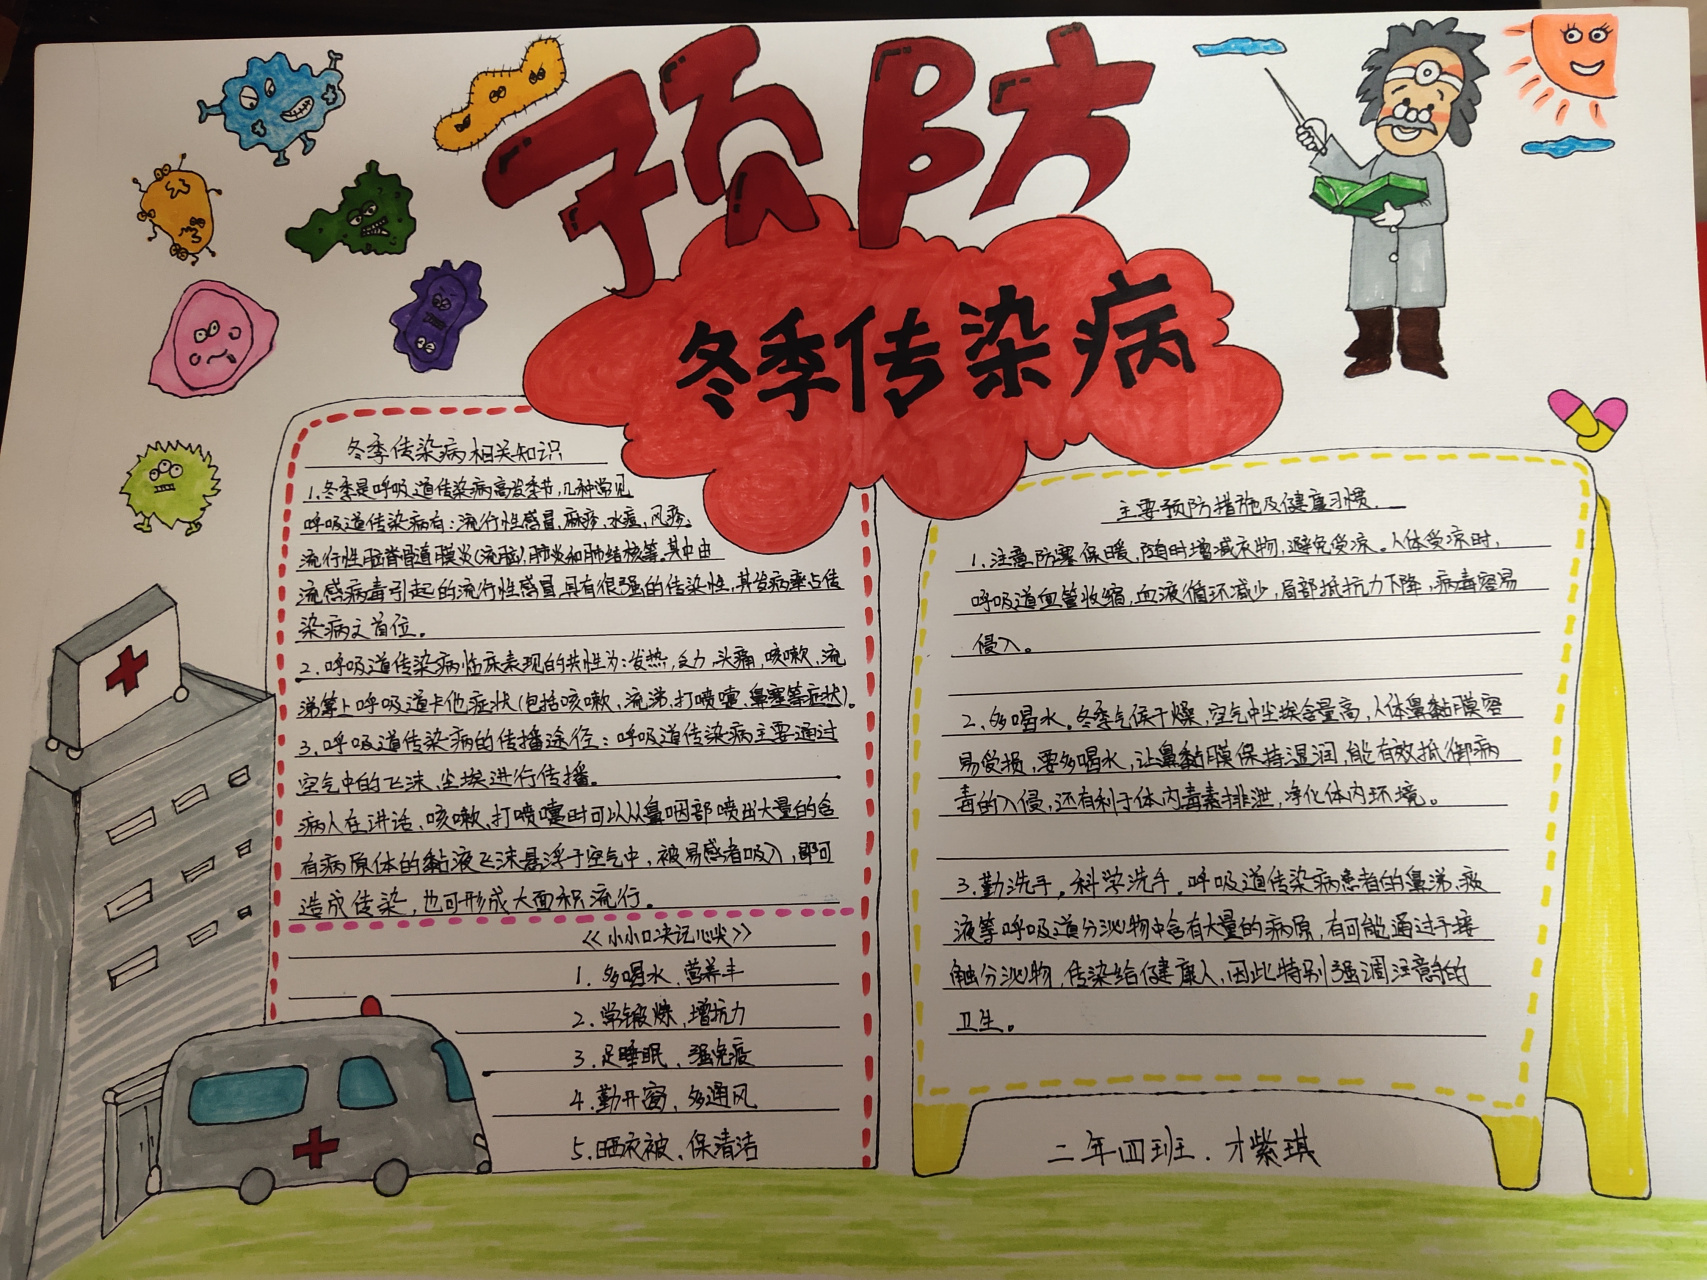 预防
冬季传染病
冬季传染病相关知识
1.冬季是呼吸道传染病高发季节,几种常见
呼吸道传染病有:流行性感冒、麻疹、水痘、风疹、
流行性脑脊髓膜炎(流脑)、肺炎和肺结核等。其中由
流感病毒引起的流行性感冒,具有很强的传染性,其发病率占传
染病之首位。
2.呼吸道传染病临床表现的共性为:发热,乏力,头痛,咳嗽、流
涕等上呼吸道卡他症状(包括咳嗽、流涕、打喷嚏、鼻塞等症状)。
3.呼吸道传染病的传播途径:呼吸道传染病主要通过
空气中的飞沫、尘埃进行传播。
病人在讲话、咳嗽、打喷嚏时可以从鼻咽部喷出大量的含
有病原体的黏液飞沫悬浮于空气中,被易感者吸入,即可
造成传染,也可形成大面积流行。
《小小口决记心尖》
1.多喝水、营养丰
2.常锻炼、增抗力
3.足睡眠、强免疫
4.勤开窗、多通风
5.晒衣被、保清洁
主要预防措施及健康习惯.
1.注意防寒保暖,随时增减衣物,避免受凉。人体受凉时,
呼吸道血管收缩,血液循环减少,局部抵抗力下降,病毒容易
侵入。
2.多喝水。冬季气候干燥,空气中尘埃含量高,人体鼻黏膜容
易受损,要多喝水,让鼻黏膜保持湿润,能有效抵御病
毒的入侵,还有利于体内毒素排泄,净化体内环境。
3.勤洗手。科学洗手。呼吸道传染病患者的鼻涕、痰
液等呼吸道分泌物中含有大量的病原,有可能通过手接
触分泌物,传染给健康人,因此特别强调注意手的
卫生。
二年四班.才紫琪